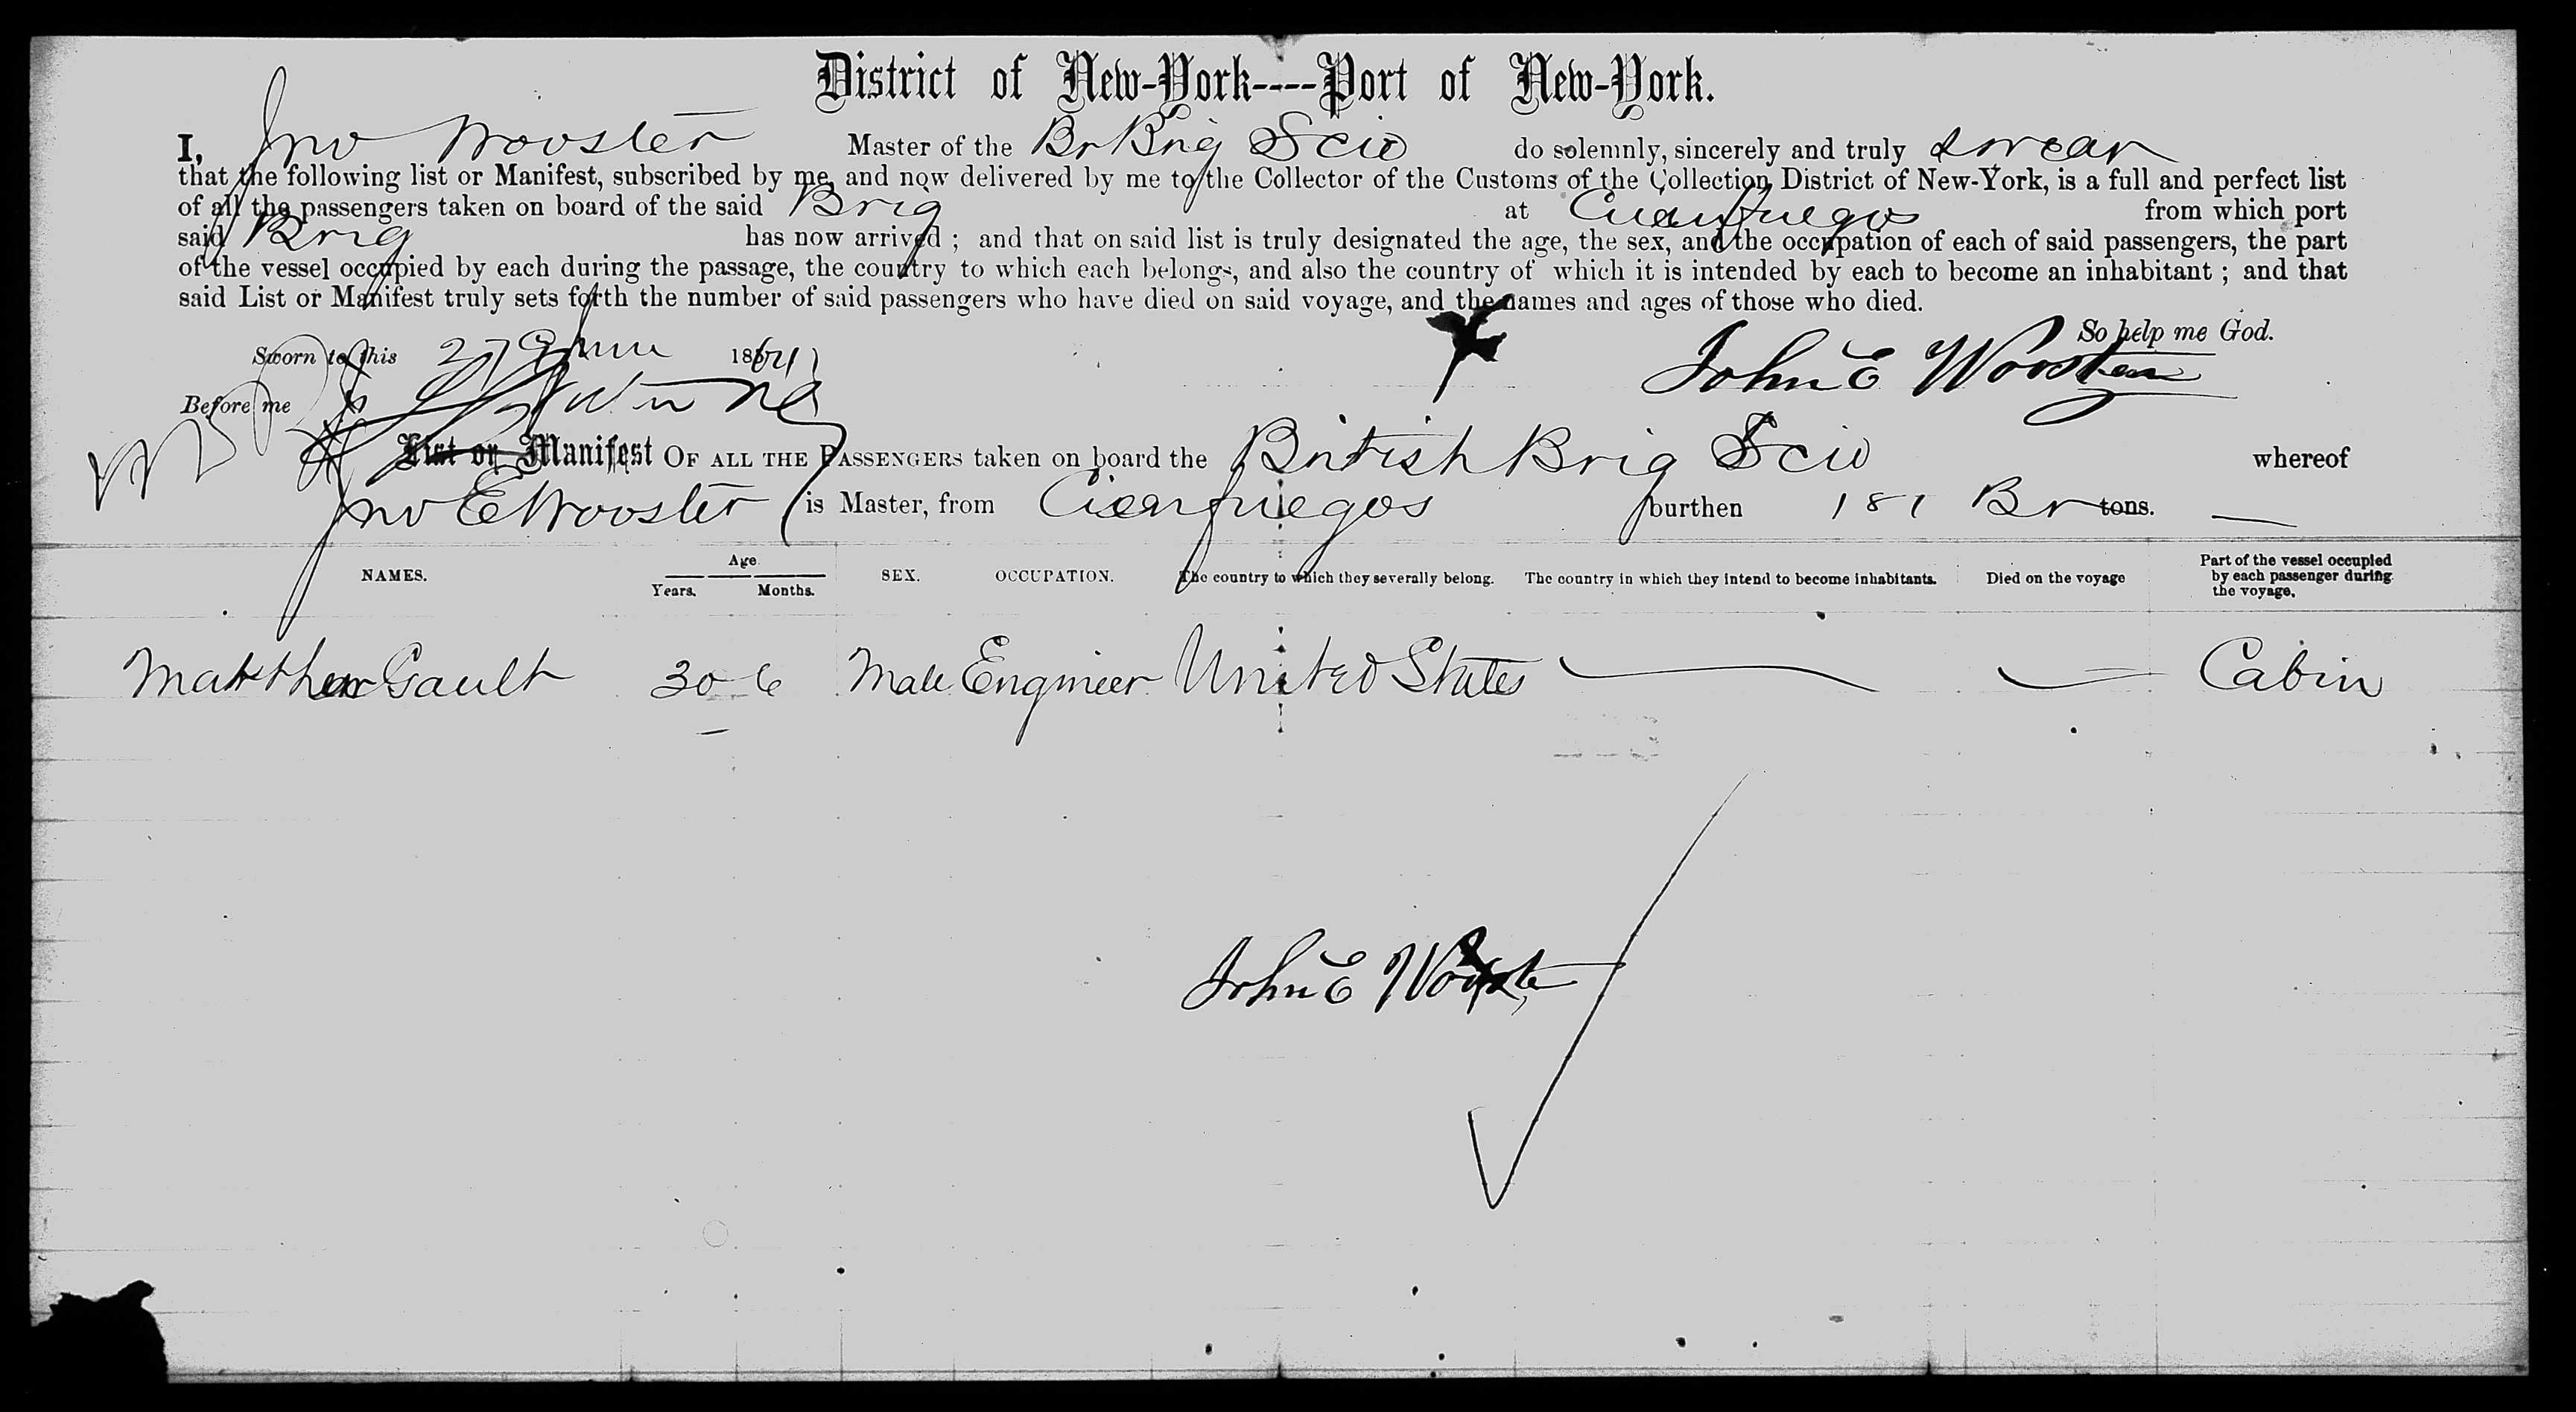 District of New-York----Port of New-York.
I, Jno Wooster Master of the Br Brig Scio do solemnly, sincerely and truly swear
that the following list or Manifest, subscribed by me, and now delivered by me to the Collector of the Customs of the Collection District of New-York, is a full and perfect list
of all the passengers taken on board of the said Brig at Cienfuegos from which port
said Brig has now arrived ; and that on said list is truly designated the age, the sex, and the occupation of each of said passengers, the part
of the vessel occupied by each during the passage, the country to which each belongs, and also the country of which it is intended by each to become an inhabitant ; and that
said List or Manifest truly sets forth the number of said passengers who have died on said voyage, and the names and ages of those who died.
So help me God.
Sworn to this 27 June 1864
John E Wooster
Before me
List or Manifest OF ALL THE PASSENGERS taken on board the British Brig Scio whereof
Jno E Wooster is Master, from Cienfuegos burthen 181 Br tons.
NAMES. Age Years. Months. SEX. OCCUPATION. The country to which they severally belong. The country in which they intend to become inhabitants. Died on the voyage Part of the vessel occupied by each passenger during the voyage.
Matthew Gault 30 6 Male Engineer United States Cabin
John E Wooster